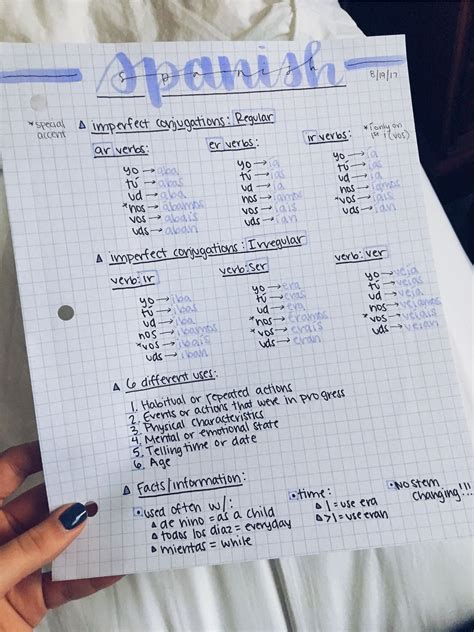 spanish
spanish
8/19/17
*special accent
△ imperfect conjugations: Regular
*(only on 1st i (vos)
ar verbs: er verbs: ir verbs:
yo → aba yo → ía yo → ía
tú → abas tú → ías tú → ías
ud → aba ud → ía ud → ía
*nos → abamos nos → íamos nos → íamos
vos → abais vos → íais vos → íais
uds → aban uds → ían uds → ían
△ imperfect conjugations: Irregular
verb: ir verb: ser verb: ver
yo → iba yo → era yo → veía
tú → ibas tú → eras tú → veías
ud → iba ud → era ud → veía
nos → ibamos *nos → eramos nos → veíamos
*vos → ibais *vos → erais *vos → veíais
uds → iban uds → eran uds → veían
△ 6 different uses:
1. Habitual or repeated actions
2. Events or actions that were in progress
3. Physical characteristics
4. Mental or emotional state
5. Telling time or date
6. Age
△ Facts/information:
used often w/:
△ de nino = as a child
△ todos los diaz = everyday
△ mientas = while
time:
△ 1 = use era
△ >1 = use eran
NO stem changing!!!